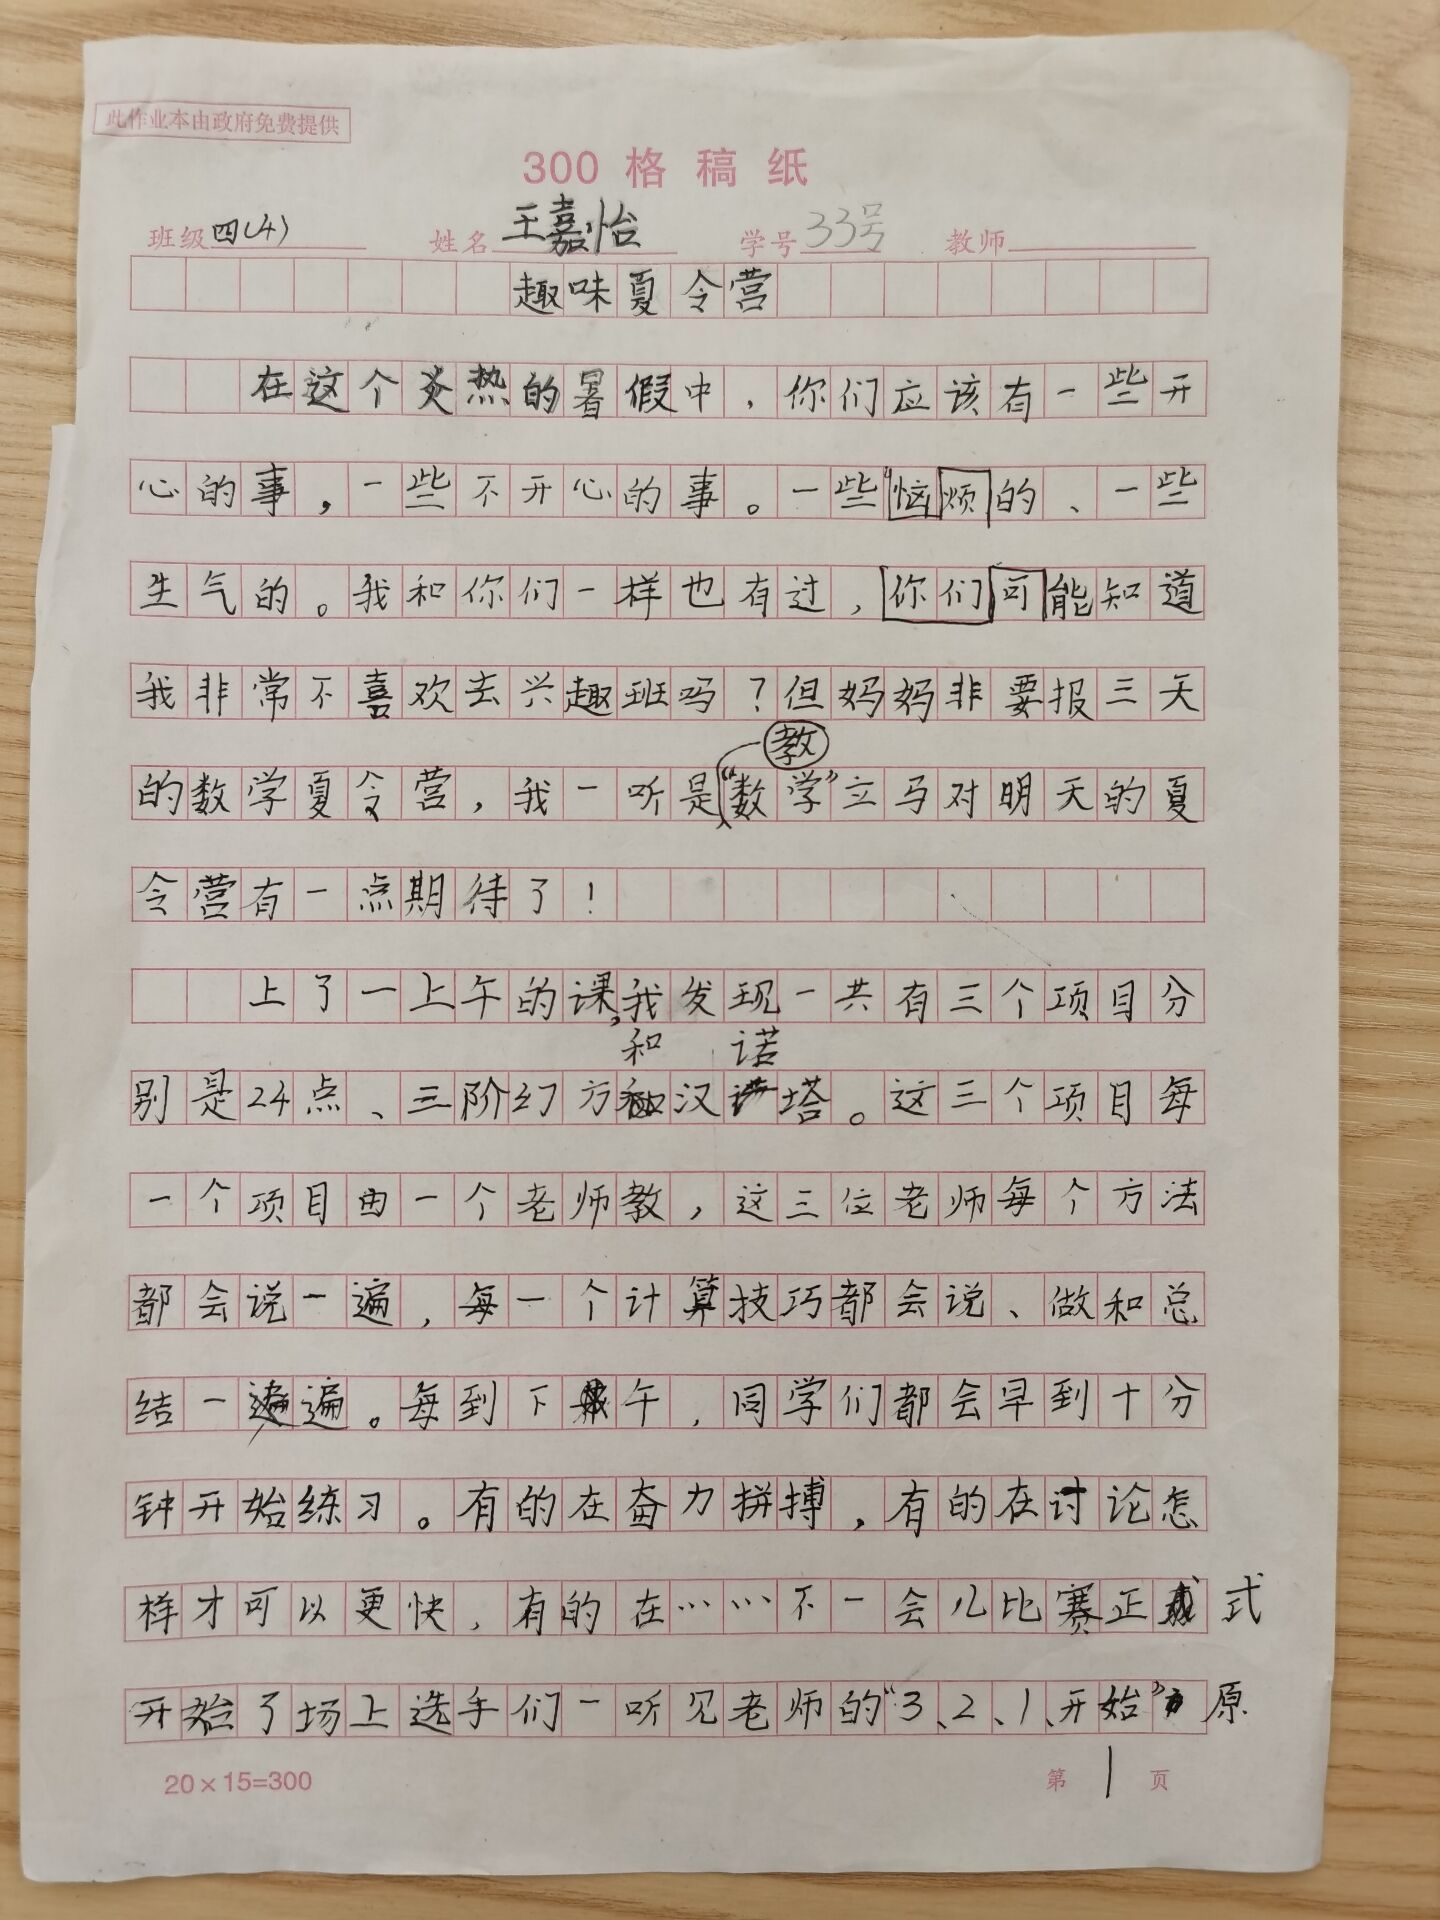 此作业本由政府免费提供
300 格 稿 纸
班级 四(4) 姓名 王嘉怡 学号 33号 教师
趣味夏令营
在这个炎热的暑假中，你们应该有一些开
心的事，一些不开心的事。一些“恼烦的、一些
生气的。我和你们一样也有过，你们可能知道
我非常不喜欢去兴趣班吗？但妈妈非要报三天
教
的数学夏令营，我一听是“数学”立马对明天的夏
令营有一点期待了！
上了一上午的课，我发现一共有三个项目分
和 诺
别是24点、三阶幻方汉塔。这三个项目每
一个项目由一个老师教，这三位老师每个方法
都会说一遍，每一个计算技巧都会说、做和总
结一遍。每到下午，同学们都会早到十分
钟开始练习。有的在奋力拼搏，有的在讨论怎
样才可以更快，有的在……不一会儿比赛正式
开始了场上选手们一听见老师的“3、2、1、开始”原
20×15=300
第 1 页